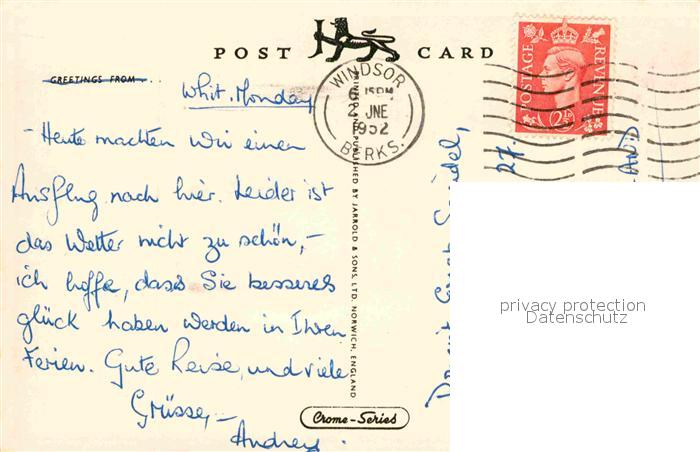 POST CARD
GREETINGS FROM
Whit. Monday
WINDSOR
6 15PM
2 JNE
1952
BERKS.
POSTAGE REVENUE
2½
- Heute machten wir einen
Ausflug nach hier. Leider ist
das Wetter nicht zu schön, -
ich hoffe, dass Sie besseres
glück haben werden in Ihren
Ferien. Gute Reise, und viele
Grüsse, -
PRINTED AND PUBLISHED BY JARROLD & SONS, LTD. NORWICH, ENGLAND
Crome-Series
27.
privacy protection
Datenschutz